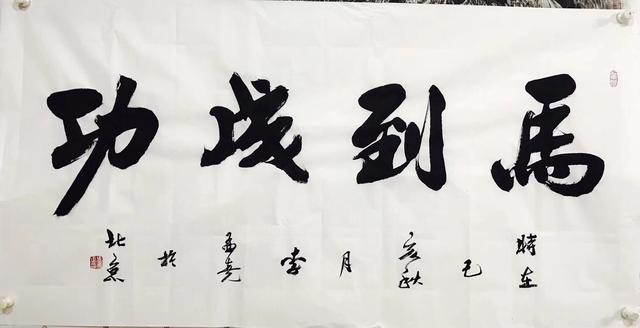 馬到成功
時在己亥秋月李孟堯於北京